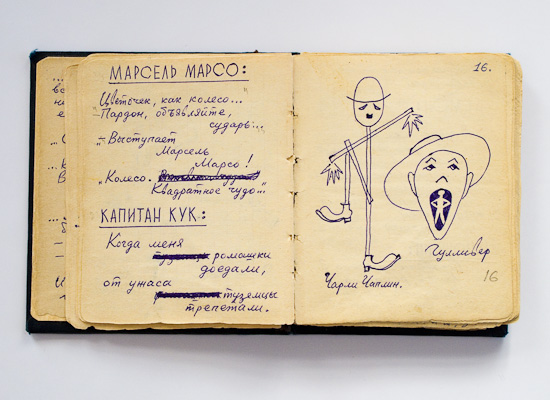 МАРСЕЛЬ МАРСО:
Цветочек, как колесо...
– Пардон, объявляйте,
сударь:..
– Выступает
Марсель
Марсо!
„Колесо.
Квадратное чудо..."
КАПИТАН КУК.:
Когда меня
ромашки
доедали,
от ужаса
туземцы
трепетали.
16.
Чарли Чаплин.
Гулливер
16